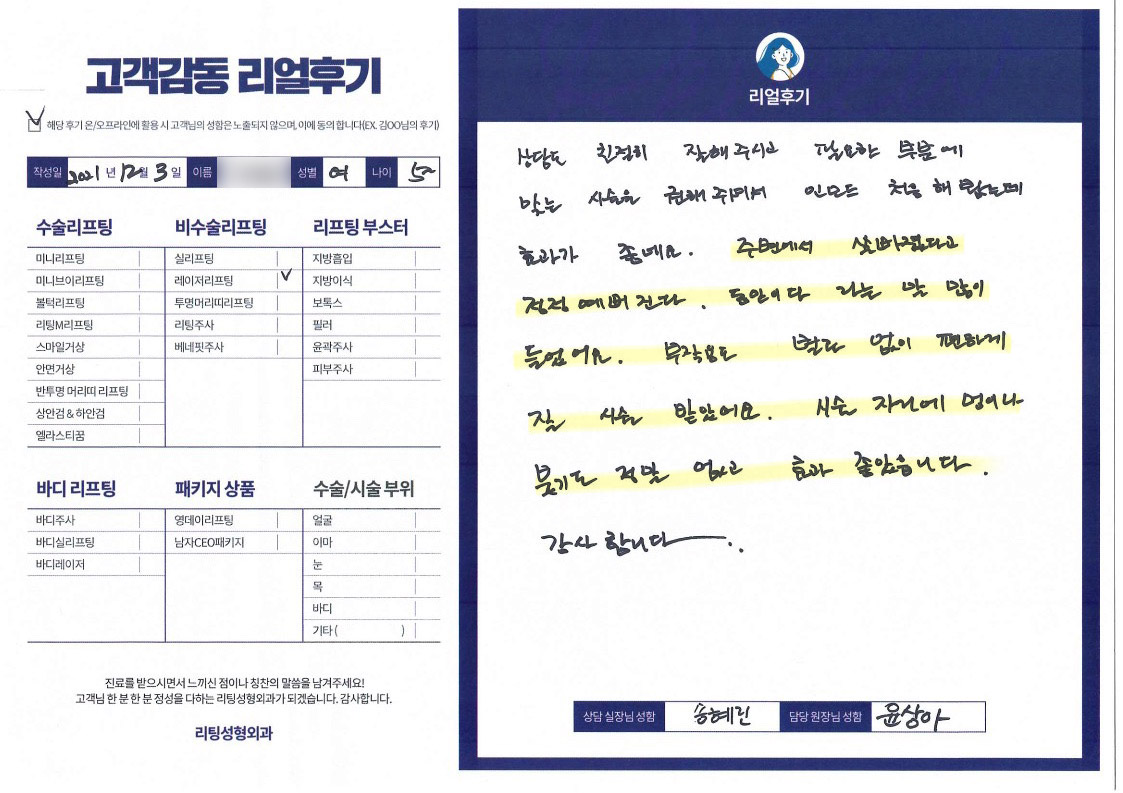 고객감동 리얼후기
해당 후기 온/오프라인에 활용 시 고객님의 성함은 노출되지 않으며, 이에 동의 합니다(EX. 김OO님의 후기)
작성일 2021 년 12월 3 일 이름 성별 여 나이
수술리프팅
미니리프팅
미니브이리프팅
볼턱리프팅
리팅M리프팅
스마일거상
안면거상
반투명 머리띠 리프팅
상안검 & 하안검
엘라스티꿈
비수술리프팅
실리프팅
레이저리프팅
투명머리띠리프팅
리팅주사
베네핏주사
리프팅 부스터
지방흡입
지방이식
보톡스
필러
윤곽주사
피부주사
바디 리프팅
바디주사
바디실리프팅
바디레이저
패키지 상품
영데이리프팅
남자CEO패키지
수술/시술 부위
얼굴
이마
눈
목
바디
기타 ( )
진료를 받으시면서 느끼신 점이나 칭찬의 말씀을 남겨주세요!
고객님 한 분 한 분 정성을 다하는 리팅성형외과가 되겠습니다. 감사합니다.
리팅성형외과
리얼후기
상담도 친절히 잘해주시고 필요한 부분에
맞는 시술을 권해주셔서 인모드 처음 해 봤는데
효과가 좋네요. 주변에서 살빠졌다고
점점 예뻐진다. 동안이다 라는 말 많이
들었어요. 부작용도 별로 없이 편하게
잘 시술 받았어요. 시술 자리에 멍이나
붓기도 정말 없고 효과 좋았습니다.
감사합니다
상담 실장님 성함 송혜린 담당 원장님 성함 윤상아